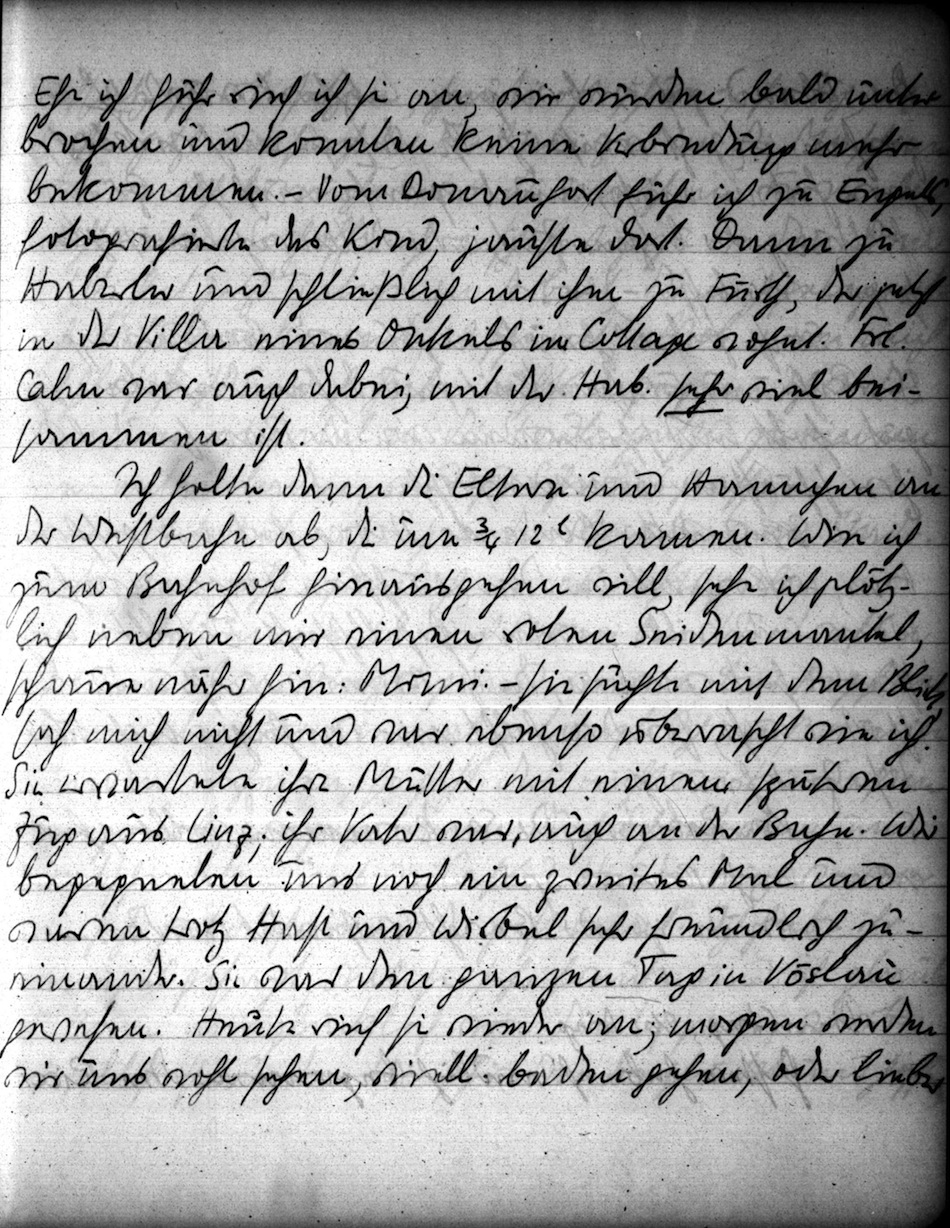 Ehe ich fuhr rief ich sie an, wir wurden bald unter
brochen und konnten keine Verbindung mehr
bekommen. – Vom Donauhort fuhr ich zu Engels,
fotografierte das Kind, jauste dort. Dann zu
Haberler und schließlich mit ihm zu Fürth, der jetzt
in der Villa eines Onkels im Cottage wohnt. Frl.
Cahn war auch dabei, mit der Hab. sehr viel bei-
sammen ist.
Ich holte dann die Eltern und Hannchen an
der Westbahn ab, die um ¾ 12 kamen. Wie ich
zum Bahnhof hinausgehen will, sehe ich plötz-
lich neben mir einen roten Seidenmantel,
schaue näher hin: Mimi. – sie suchte mit dem Blick,
sah mich nicht und war ebenso überrascht wie ich.
Sie erwartete ihre Mutter mit einem späteren
Zug aus Linz; ihr Vater war auch an der Bahn. Wir
begegneten uns noch ein zweites Mal und
waren trotz Hast und Wirbel sehr freundlich zu-
einander. Sie war den ganzen Tag in Vöslau
gewesen. Heute rief sie wieder an; morgen werden
wir uns wohl sehen, viell. baden gehen, oder lieber